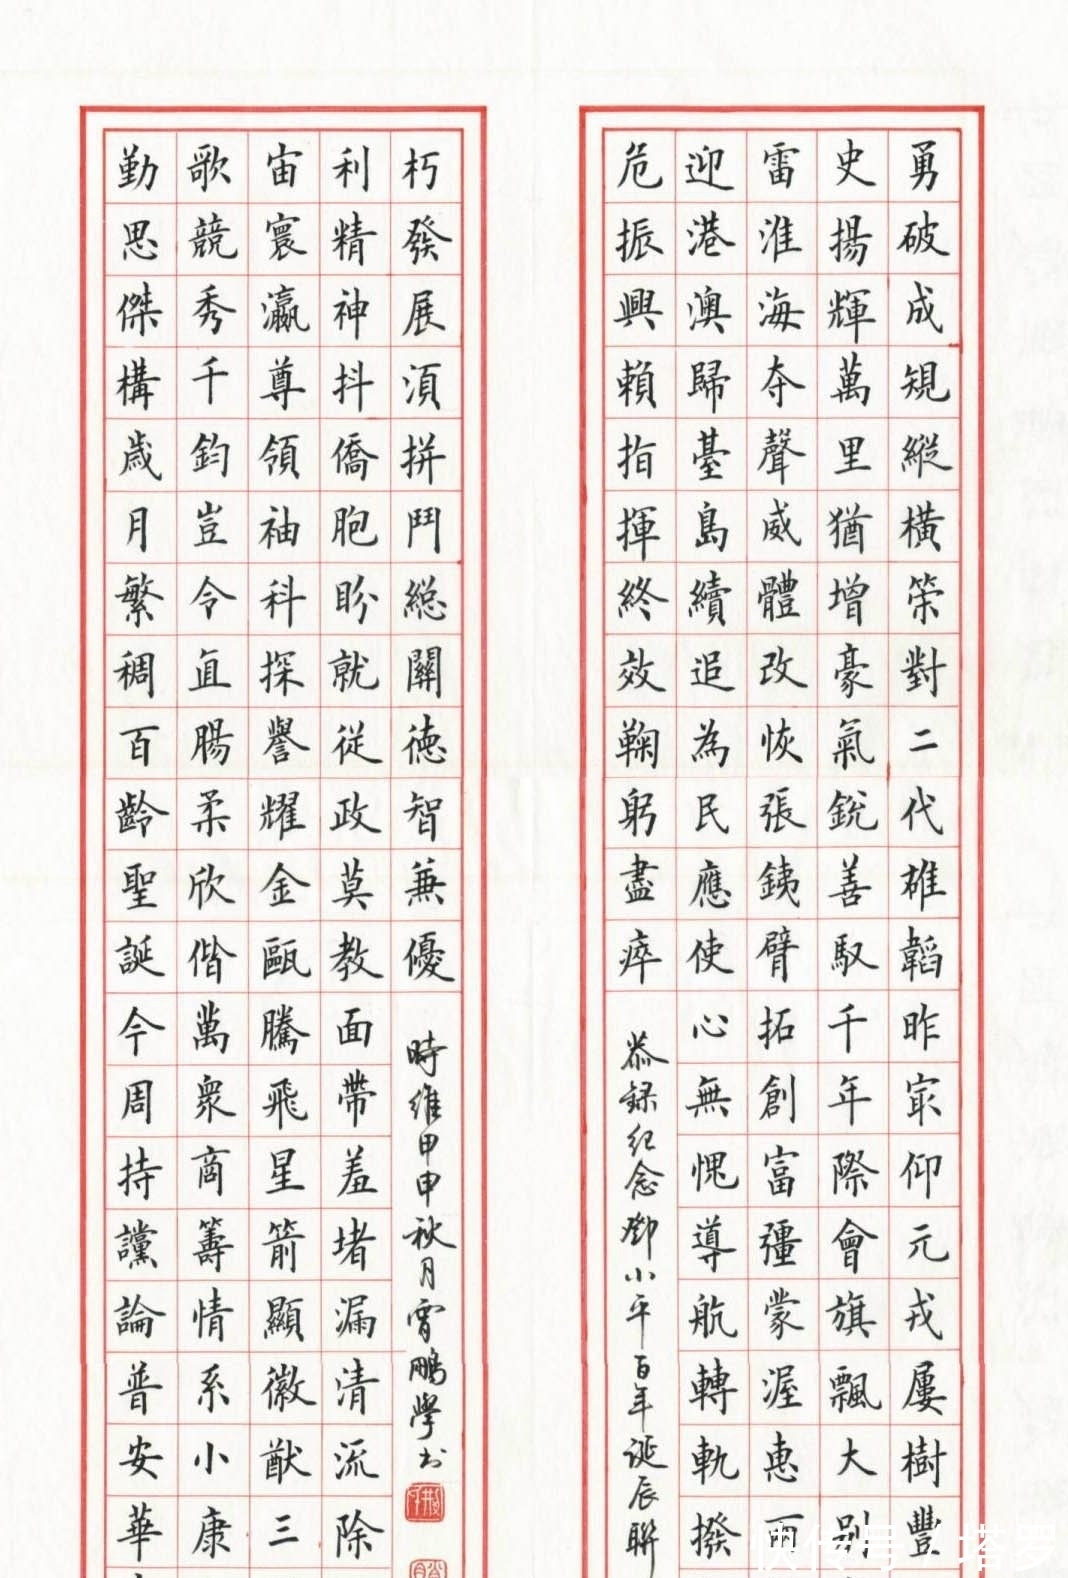 勇破成規縱橫策對二代雄韜昨㝡仰元戎屢樹豐
史揚輝萬里猶增豪氣銳善馭千年際會旗飄大別
雷淮海夺聲威體改恢張銕臂拓創富彊蒙渥惠
迎港澳歸臺島續追為民應使心無愧導航轉軌撥
危振興賴指揮終效鞠躬盡瘁
恭録纪念鄧小平百年诞辰聯
勤思傑構歲月繁稠百齡聖誕今周持讜論普安華
歌競秀千鈞豈令直腸柔欣偕萬衆商籌情系小康
宙寰瀛尊領袖科探譽耀金甌騰飛星箭顯徽猷三
利精神抖僑胞盼就從政莫教面帶羞堵漏清流除
朽發展須拼鬥総關德智兼優
時維甲申秋月霄鵬學书
快传号 / 塔罗